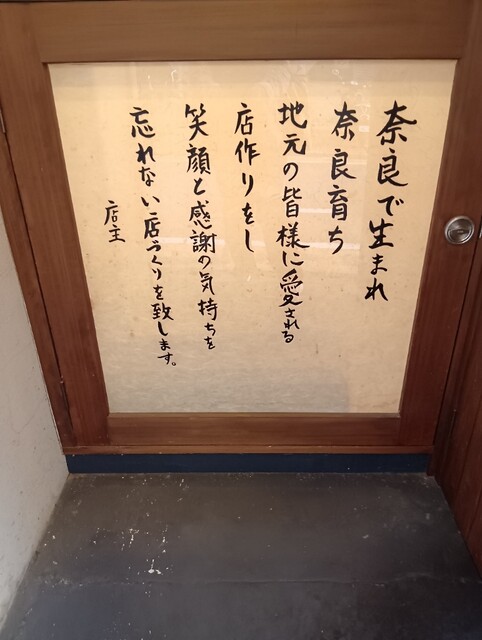 奈良で生まれ
奈良育ち
地元の皆様に愛される
店作りをし
笑顔と感謝の気持ちを
忘れない店づくりを致します。
店主